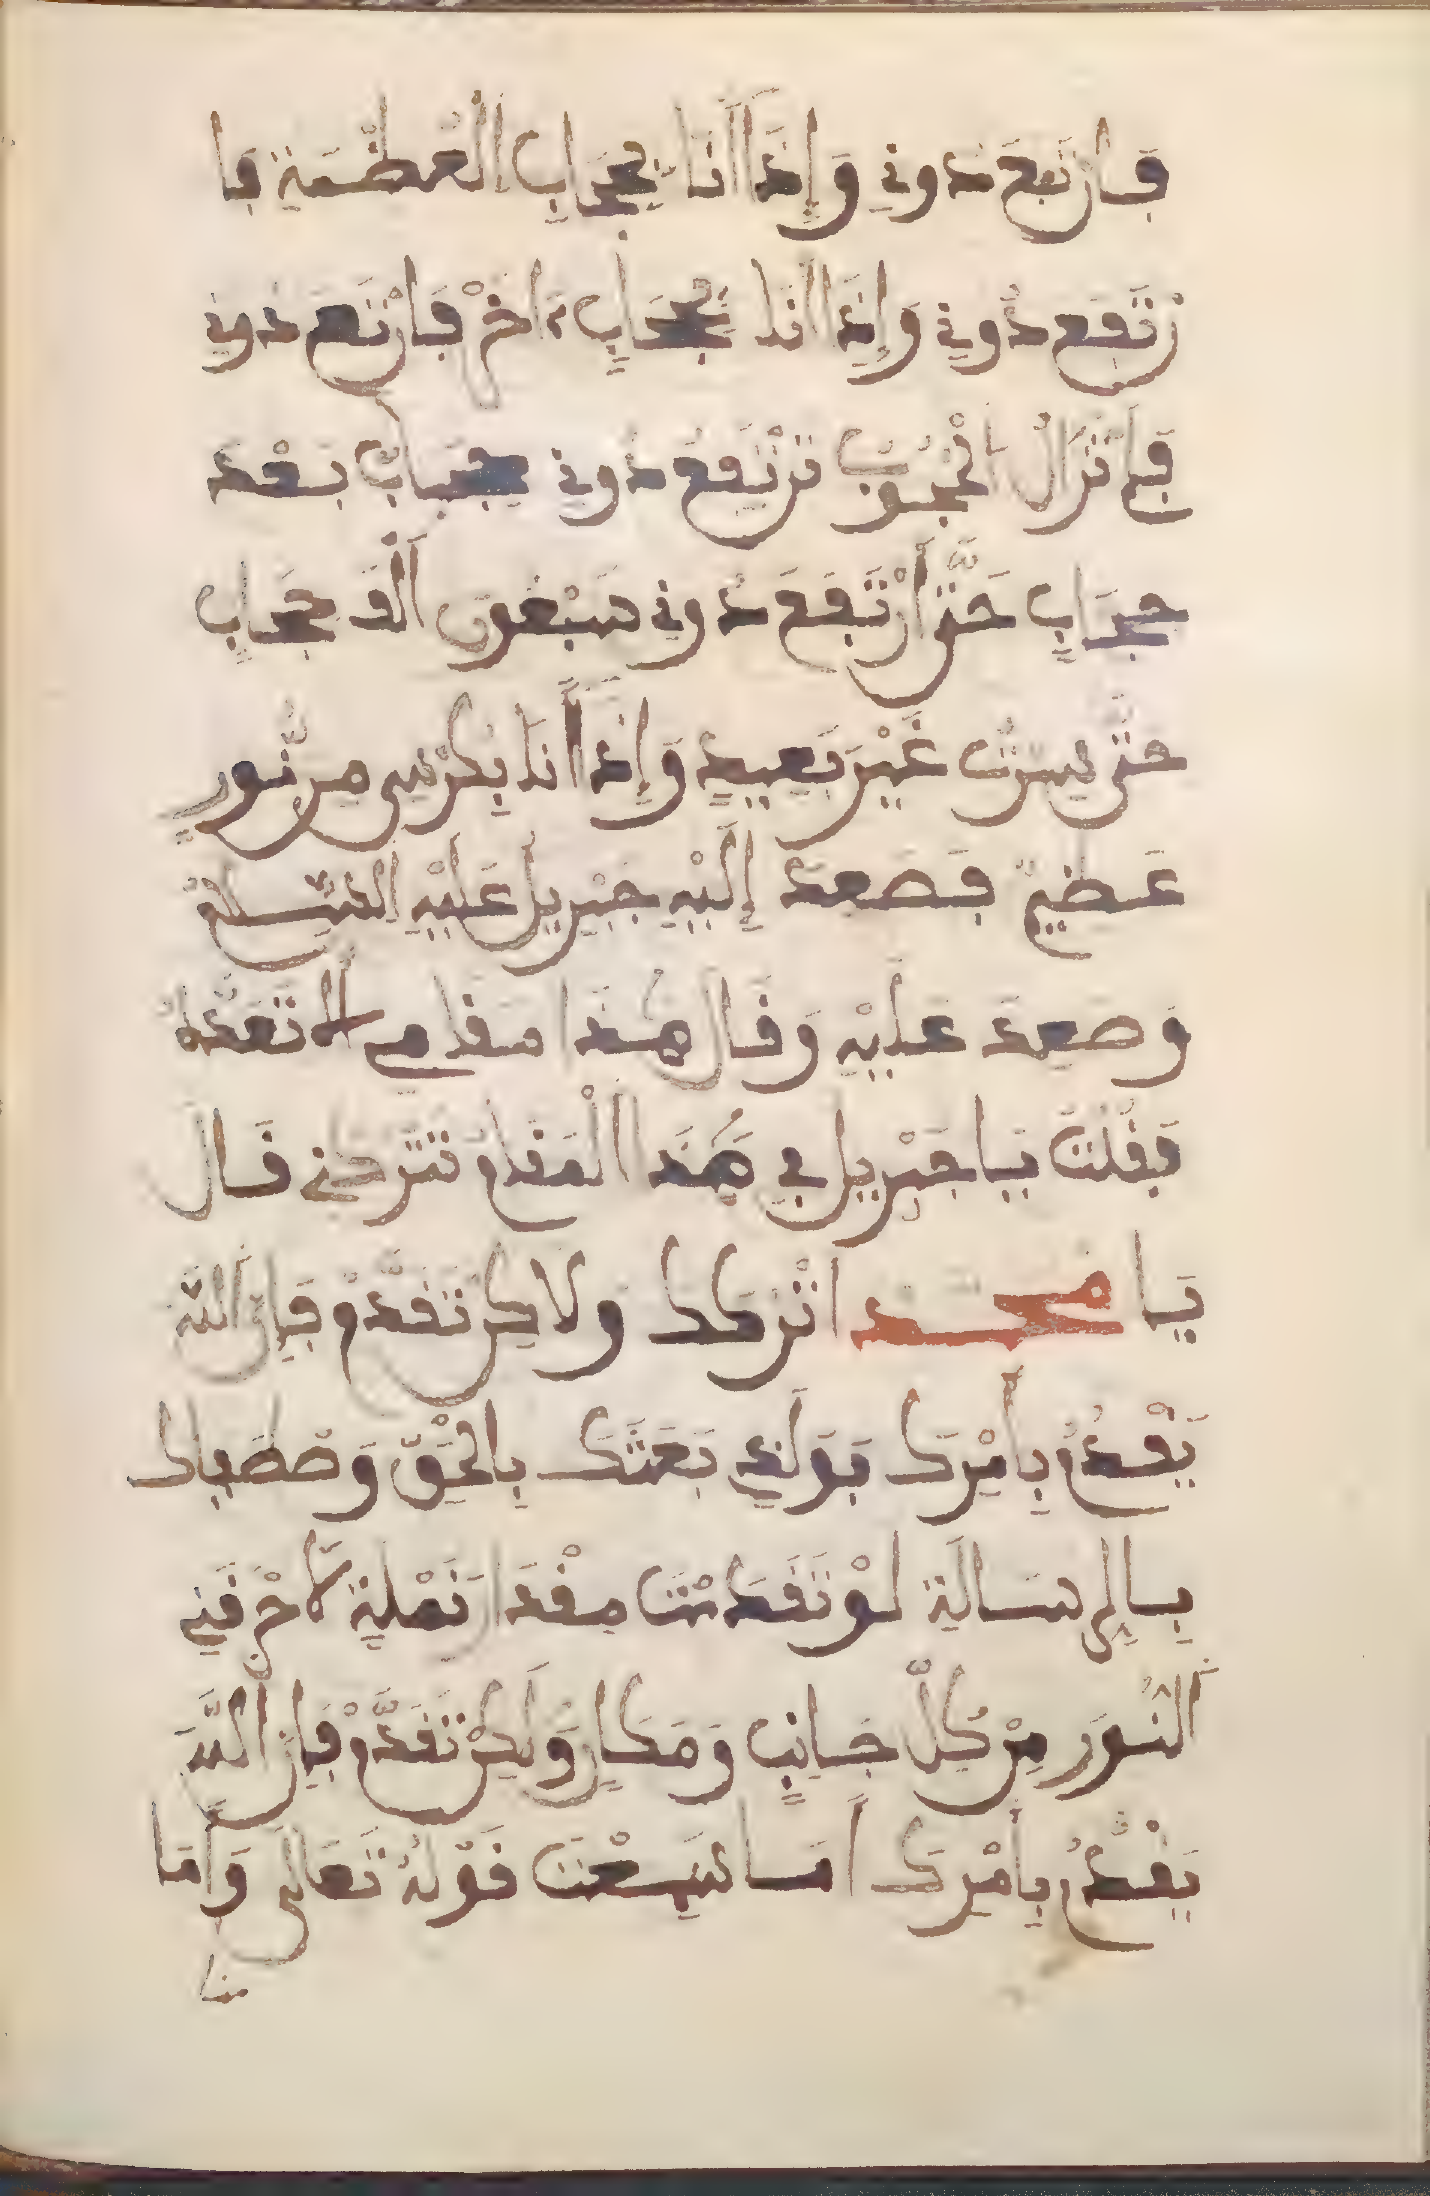 فارتفع دوني وإذا أنا بحجاب العظمة فا
رتفع دوني وإذا أنا بحجاب اخر فارتفع دوني
فلم تزال الحجوب ترتفع دوني حجاب بعد
حجاب حتى ارتفع دوني سبعون ألف حجاب
حتى سرت غير بعيد وإذا أنا بكرسي من نور
عظيم فصعد إليه جبريل عليه السلام
وصعد عليه وقال هذا مقامي لا تعداه
فقلت يا جبريل في هذا المقام تتركني قال
يا محمد اتركك ولاكن تقدم فإن الله
يقدم بأمرك فولذي بعثك بالحق وصطفاك
بالرسالة لو تقدمت مقدار نملة لاحرقني
النور من كل جانب ومكان ولكن تقدم فإن الله
يقدم بأمرك أما سمعت قوله تعالى وأما
منا